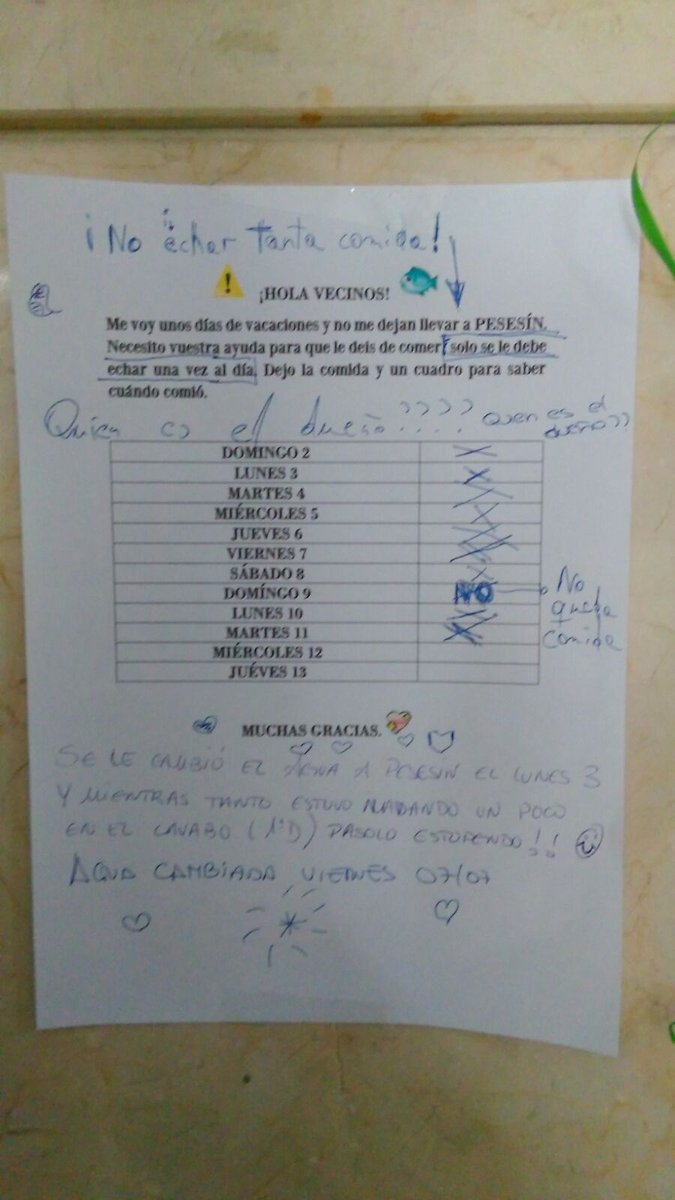 ¡No echar tanta comida!
¡HOLA VECINOS!
Me voy unos días de vacaciones y no me dejan llevar a PESESÍN.
Necesito vuestra ayuda para que le deis de comer, solo se le debe
echar una vez al día. Dejo la comida y un cuadro para saber
cuándo comió.
Quien es el dueño????
Quien es el
dueño??
DOMINGO 2
LUNES 3
MARTES 4
MIÉRCOLES 5
JUEVES 6
VIERNES 7
SÁBADO 8
DOMÍNGO 9 NO No
queda
comida
LUNES 10
MARTES 11
MIÉRCOLES 12
JUÉVES 13
MUCHAS GRACIAS.
SE LE CAMBIÓ EL AGUA A PESESIN EL LUNES 3
Y MIENTRAS TANTO ESTUVO NADANDO UN POCO
EN EL LAVABO (1ºD) PASOLO ESTUPENDO!!
AGUA CAMBIADA VIERNES 07/07